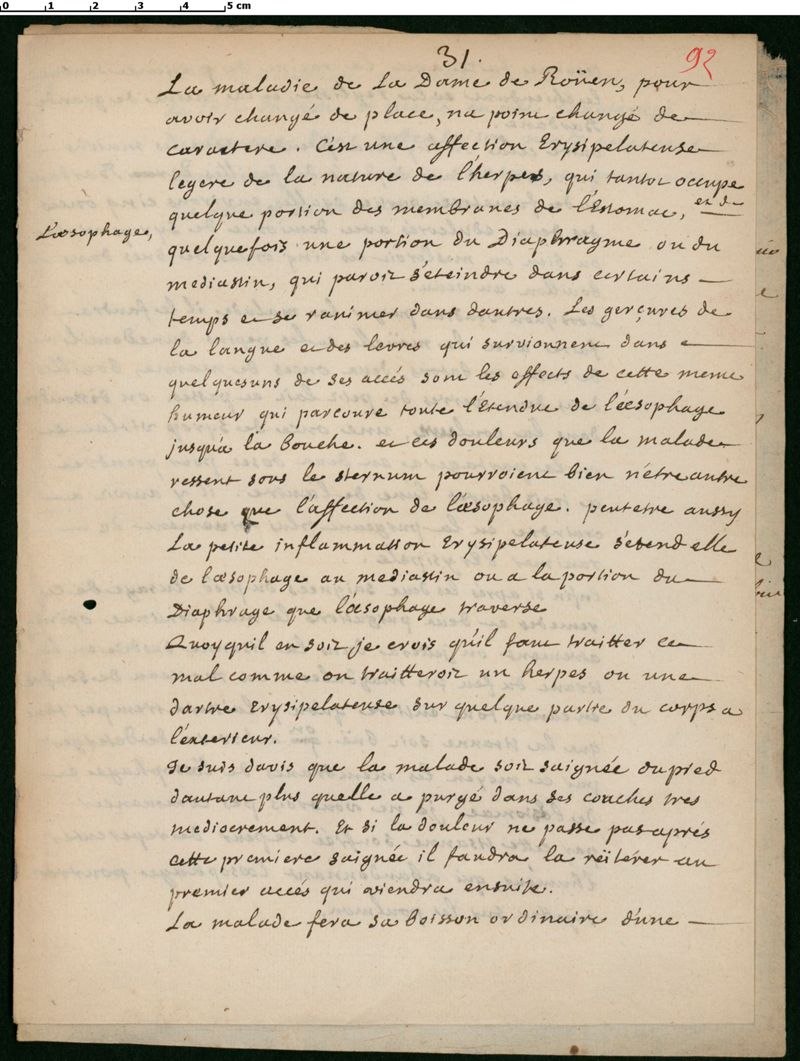 0 1 2 3 4 5 cm
31.
92
La maladie de La Dame de Roüen, pour
avoir changé de place, na point changé de
caractere. C'est une affection Erysipelateuse
legere de la nature de l'herpes, qui tantot occupe
quelque portion des membranes de l'Estomac, et de
L'œsophage,
quelquefois une portion du Diaphragme ou du
mediastin, qui paroit s'eteindre dans certains
temps et se ranimer dans dautres. Les gerçures de
la langue et des levres qui surviennent dans
quelquesuns de ses accés sont les effects de cette meme
humeur qui parcoure toute l'Etendue de l'œsophage
jusqu'a la bouche. et ces douleurs que la malade
ressent sous le sternum pourroient bien n'etre autre
chose que l'affection de l'œsophage. peutetre aussy
La petite inflammation Erysipelateuse s'etend elle
de l'œsophage au mediastin ou a la portion du
Diaphrage que l'œsophage traverse
Quoyquil en soit je crois qu'il faut traitter ce
mal comme on traitteroit un herpes ou une
dartre Erysipelateuse sur quelque partie du corps a
l'exterieur.
Je suis davis que la malade soit saignée du pied
dautant plus quelle a purgé dans ses couches tres
mediocrement. Et si la douleur ne passe pas aprés
cette premiere saignée il faudra la reïterer au
premier accés qui viendra ensuite.
La malade fera sa boisson ordinaire d'une